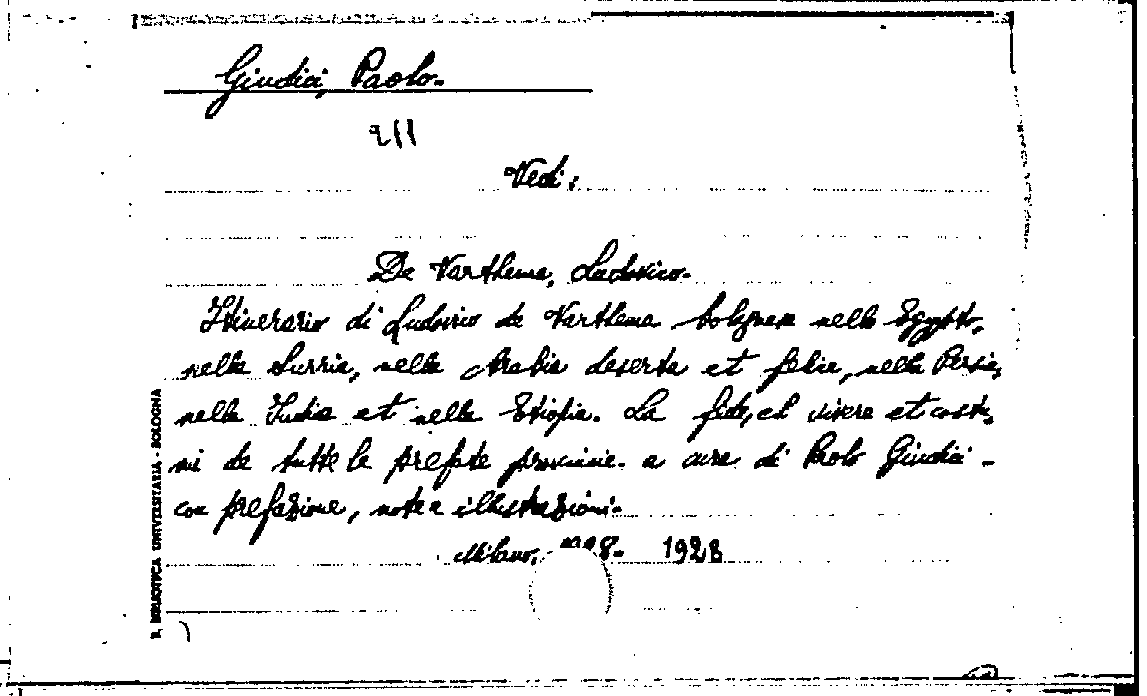 Giudici, Paolo.
211
Vedi:
De Varthema, Ludovico.
Itinerario di Ludovico de Varthema bolognese nello Egypto,
nella Surria, nella Arabia deserta et felice, nella Persia,
nella India et nella Etiopia. La fede, el vivere et costu-
mi de tutte le prefate provincie. a cura di Paolo Giudici -
con prefazione, note e illustrazioni.
Milano, 1928. 1928
R. BIBLIOTECA UNIVERSITARIA - BOLOGNA